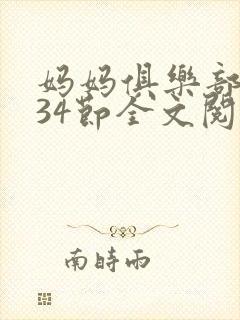 妈妈俱樂部
34節全文閱
南時雨